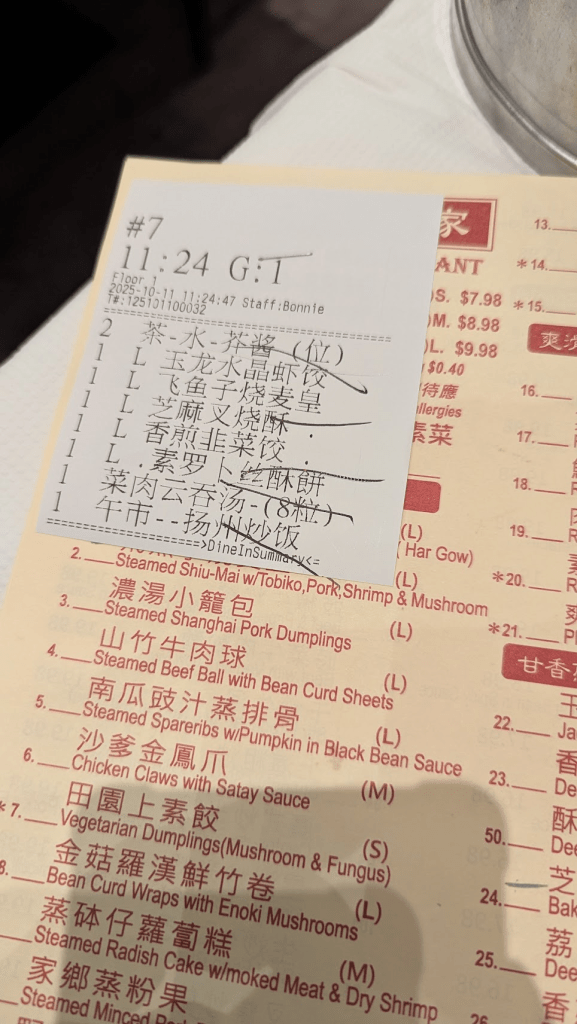 #7
11:24 G:1
Floor 1
2025-10-11 11:24:47 Staff:Bonnie
T#:125101100032
2 茶-水-芥酱 (位)
1 L 玉龙水晶虾饺
1 L 飞鱼子烧麦皇
1 L 芝麻叉烧酥
1 L 香煎韭菜饺
1 L.素罗卜丝酥餅
1 菜肉云吞汤-(8粒)
1 午市--扬州炒饭
>DineInSummary<=
家
ANT
S. $7.98
M. $8.98
L. $9.98
$0.40
待應
allergies
素菜
(L)
( Har Gow)
(L)
2. Steamed Shiu-Mai w/Tobiko,Pork,Shrimp & Mushroom
濃湯小籠包 (L)
3. Steamed Shanghai Pork Dumplings
山竹牛肉球 (L)
4. Steamed Beef Ball with Bean Curd Sheets
南瓜豉汁蒸排骨 (L)
5. Steamed Spareribs w/Pumpkin in Black Bean Sauce
沙爹金鳳爪 (M)
6. Chicken Claws with Satay Sauce
田園上素餃 (S)
*7. Vegetarian Dumplings(Mushroom & Fungus)
金菇羅漢鮮竹卷 (L)
8. Bean Curd Wraps with Enoki Mushrooms
蒸砵仔蘿蔔糕 (M)
Steamed Radish Cake w/moked Meat & Dry Shrimp
家鄉蒸粉果
Steamed Minced
13.
*14.
*15.
16.
17.
18.
19.
*20.
*21.
甘香
22.
23.
50.
24.
25.
26